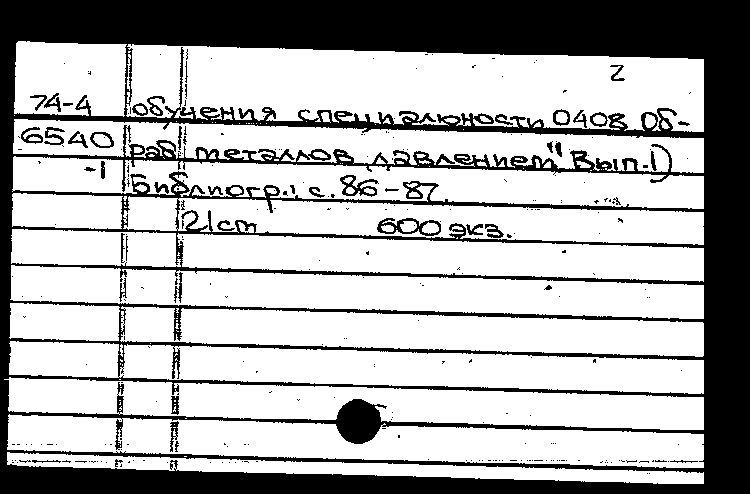 2
74-4 обучения специальности 0408 Об-
6540 раб. металлов давлением" Вып.1)
-1 Библиогр.: с. 86-87
21cm 600 экз.